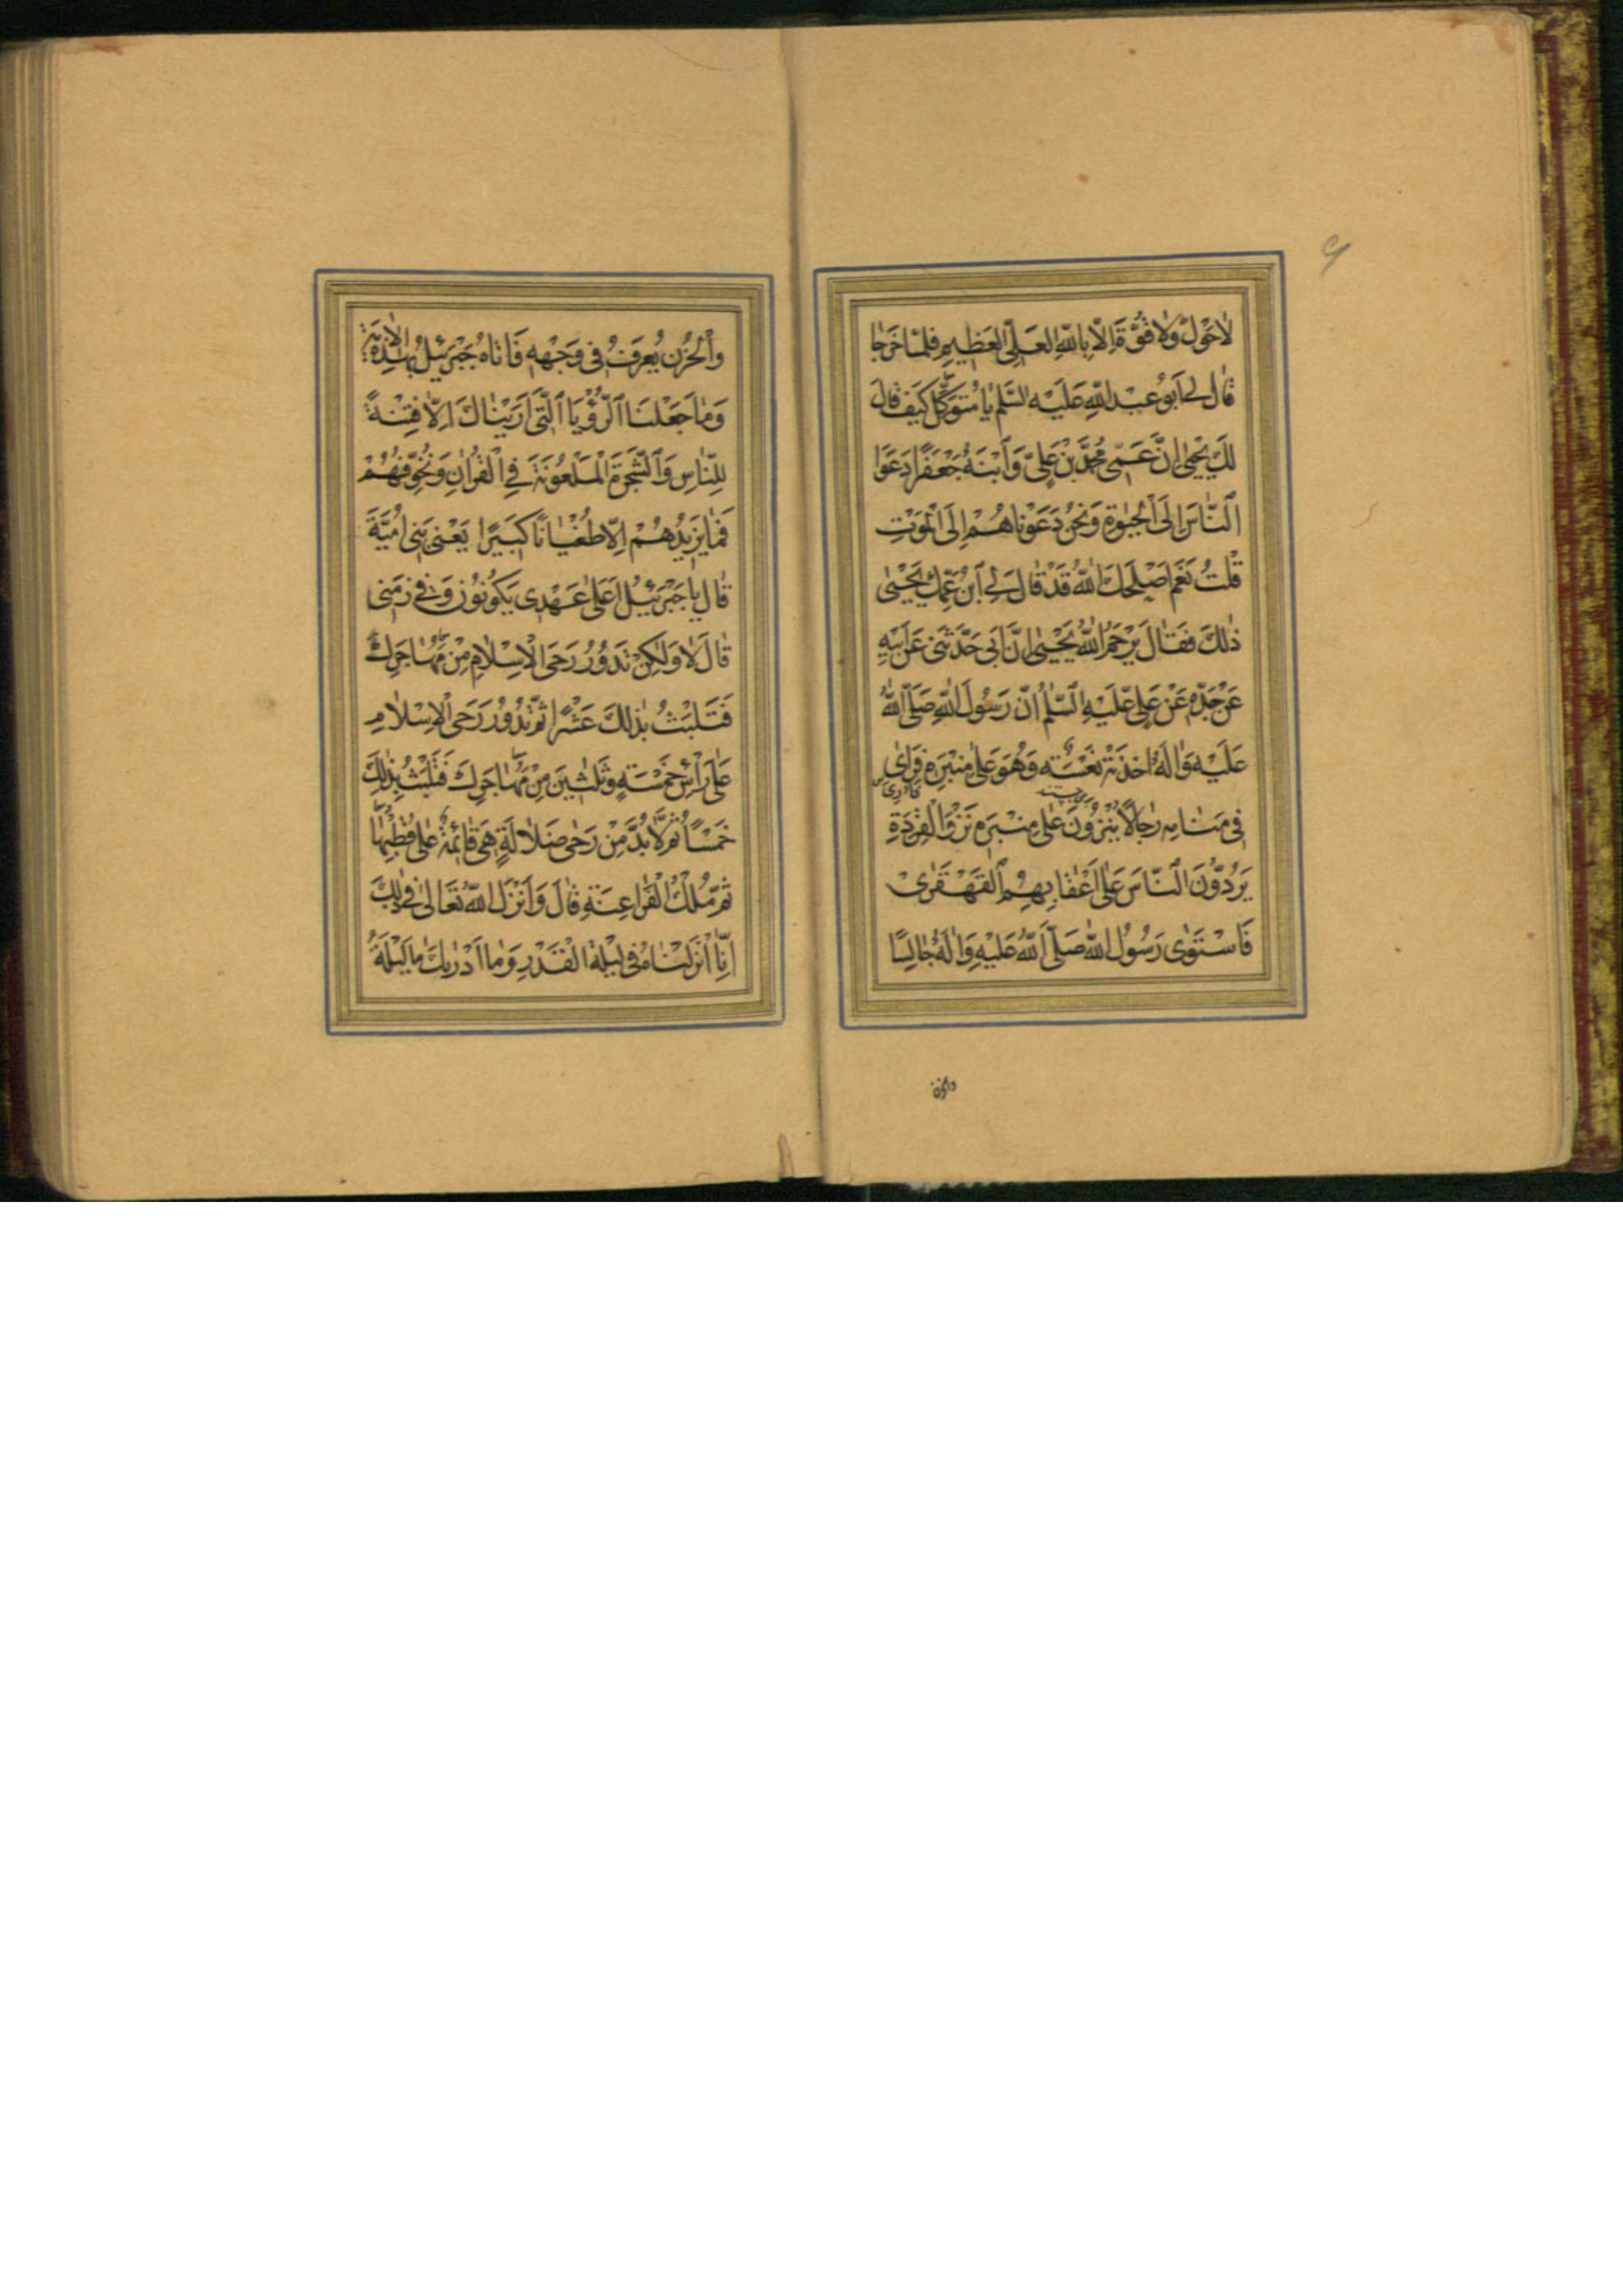 لَاحَوْلَ وَلَا قُوَّةَ اِلَّا بِاللّٰهِ العَلِیِّ العَظِیمِ فَلَمَّا خَرَجَا
قَالَ لِی اَبُو عَبْدِ اللّٰهِ عَلَیْهِ السَّلٰمُ یَا مُتَوَكِّلُ كَیْفَ قَالَ
لَكَ یَحْیٰی اِنَّ عَمِّی مُحَمَّدَ بْنَ عَلِیٍّ وَابْنَهُ جَعْفَرًا دَعَوَا
النَّاسَ اِلَی الْحَیٰوةِ وَنَحْنُ دَعَوْنَاهُمْ اِلَی الْمَوْتِ
قُلْتُ نَعَمْ اَصْلَحَكَ اللّٰهُ قَدْ قَالَ لِیَ ابْنُ عَمِّكَ یَحْیٰی
ذٰلِكَ فَقَالَ یَرْحَمُ اللّٰهُ یَحْیٰی اِنَّ اَبِی حَدَّثَنِی عَنْ اَبِیهِ
عَنْ جَدِّهِ عَنْ عَلِیٍّ عَلَیْهِ السَّلٰمُ اَنَّ رَسُولَ اللّٰهِ صَلَّی اللّٰهُ
عَلَیْهِ وَاٰلِهِ اَخَذَتْهُ نَعْسَةٌ وَهُوَ عَلٰی مِنْبَرِهِ فَرَاٰی
فِی مَنَامِهِ رِجَالًا یَنْزُونَ عَلٰی مِنْبَرِهِ نَزْوَ الْقِرَدَةِ
یَرُدُّونَ النَّاسَ عَلٰی اَعْقَابِهِمُ الْقَهْقَرٰی
فَاسْتَوٰی رَسُولُ اللّٰهِ صَلَّی اللّٰهُ عَلَیْهِ وَاٰلِهِ جَالِسًا
والحزن
وَالْحُزْنُ یُعْرَفُ فِی وَجْهِهِ فَاَتَاهُ جَبْرَئِیلُ بِهٰذِهِ الْاٰیَةِ
وَمَا جَعَلْنَا الرُّؤْیَا الَّتِی اَرَیْنَاكَ اِلَّا فِتْنَةً
لِلنَّاسِ وَالشَّجَرَةَ الْمَلْعُونَةَ فِی الْقُرْاٰنِ وَنُخَوِّفُهُمْ
فَمَا یَزِیدُهُمْ اِلَّا طُغْیَانًا كَبِیرًا یَعْنِی بَنِی اُمَیَّةَ
قَالَ یَا جَبْرَئِیلُ اَعَلٰی عَهْدِی یَكُونُونَ وَفِی زَمَنِی
قَالَ لَا وَلٰكِنْ تَدُورُ رَحَی الْاِسْلَامِ مِنْ مُهَاجَرِكَ
فَتَلْبَثُ بِذٰلِكَ عَشْرًا ثُمَّ تَدُورُ رَحَی الْاِسْلَامِ
عَلٰی رَأْسِ خَمْسَةٍ وَثَلٰثِینَ مِنْ مُهَاجَرِكَ فَتَلْبَثُ بِذٰلِكَ
خَمْسًا ثُمَّ لَا بُدَّ مِنْ رَحٰی ضَلَالَةٍ هِیَ قَائِمَةٌ عَلٰی قُطْبِهَا
ثُمَّ مُلْكُ الْفَرَاعِنَةِ قَالَ وَاَنْزَلَ اللّٰهُ تَعَالٰی فِی ذٰلِكَ
اِنَّا اَنْزَلْنَاهُ فِی لَیْلَةِ الْقَدْرِ وَمَا اَدْرٰیكَ مَا لَیْلَةُ